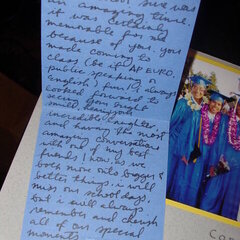 she was
an amazing time.
it was certainly
memorable for me
because of you. you
made coming to
class (be it AP EURO,
public speaking or
English) fun. I always
looked forward to
seeing your bright
smile, hearing your
incredible laughter
and having the most
amazing conversations
with one of my best
friends! now, as we
both move onto bigger &
better things, i will
miss our school days,
but i will always
remember and cherish
all of our special
moments
Co